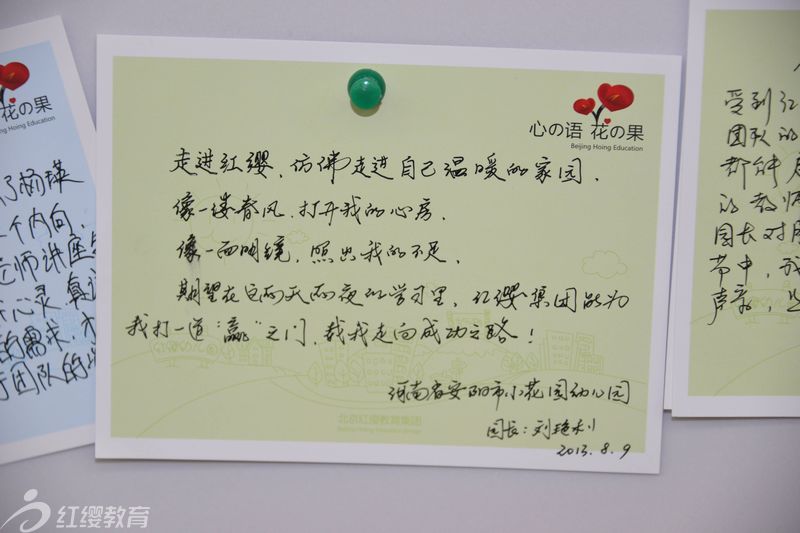 花の果
杨瑛
个内向
师讲座
心灵
的需求
团队的
心の语 花の果
Beijing Hoing Education
走进红缨，仿佛走进自己温暖的家园，
像一缕春风，打开我的心房，
像一面明镜，照出我的不足，
期望在这两天两夜的学习里，红缨集团能为
我打一道“赢”之门，载我走向成功之路！
河南省安阳市小花园幼儿园
园长：刘艳利
2013.8.9
北京红缨教育集团
受到红
团队的
都能
的教师
园长对
节中，我
声亲，
红缨教育